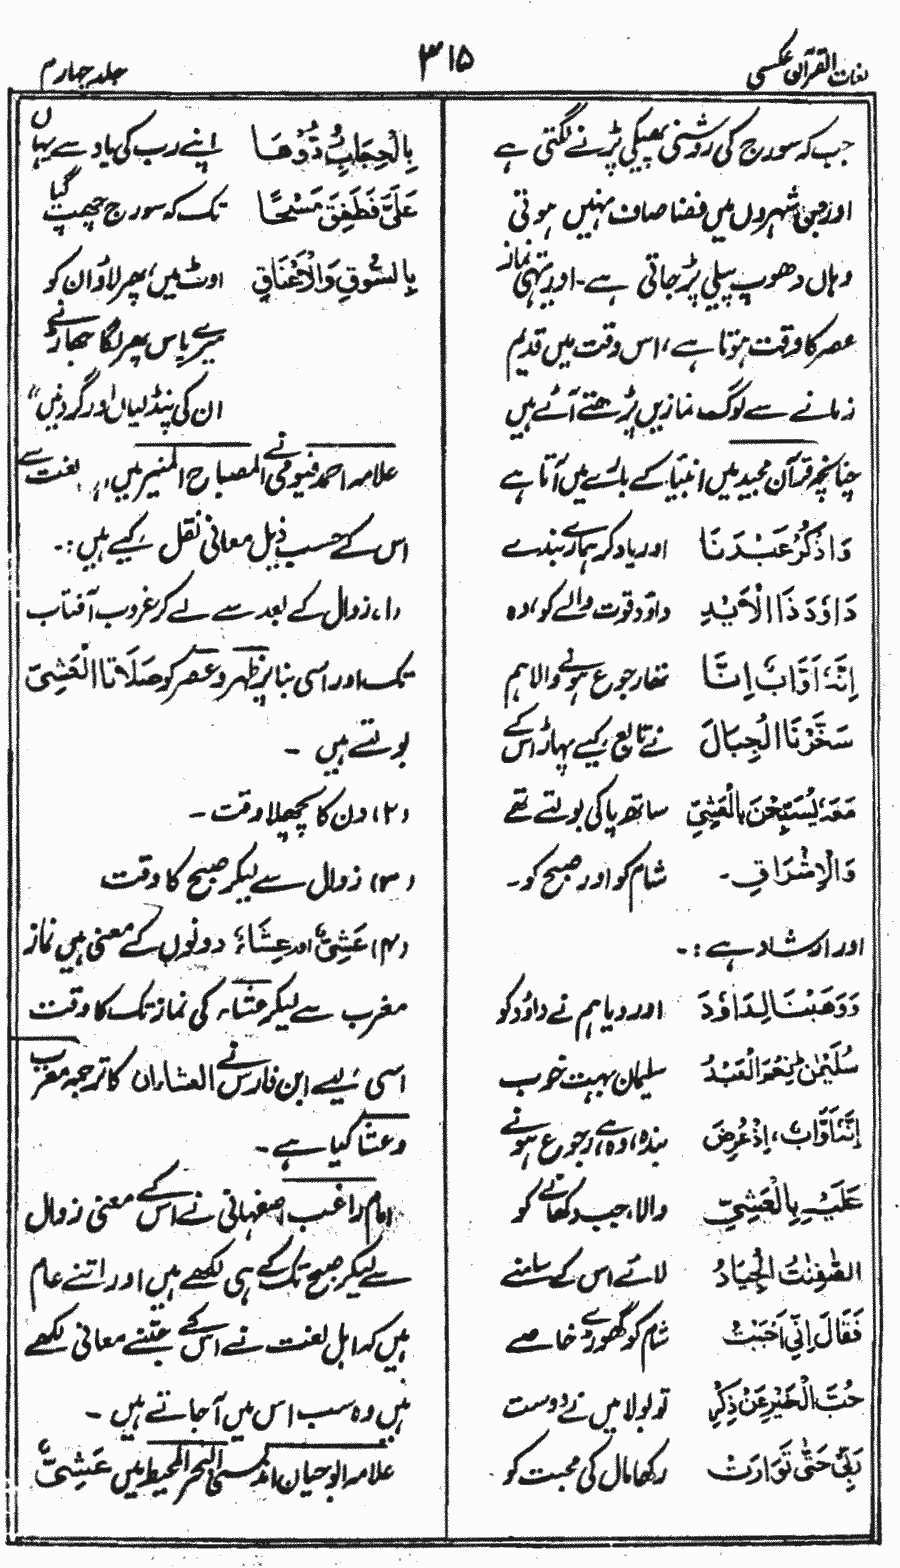 لغات القرآن عکسی
۳۱۵
جلد چہارم
جب کہ سورج کی روشنی پھیکی پڑنے لگتی ہے
اور جن شہروں میں فضا صاف نہیں ہوتی
وہاں دھوپ پیلی پڑ جاتی ہے۔ اور یہی نماز
عصر کا وقت ہوتا ہے، اس وقت میں قدیم
زمانے سے لوگ نمازیں پڑھتے آئے ہیں
چنانچہ قرآن مجید میں انبیاء کے بارے میں آتا ہے
وَاذْكُرْ عَبْدَنَا اور یاد کر ہمارے بندے
دَاوٗدَ ذَا الْاَيْدِ داؤد قوت والے کو، وہ
اِنَّهٗ اَوَّابٌ اِنَّا تھا رجوع ہونے والا ہم
سَخَّرْنَا الْجِبَالَ نے تابع کیے پہاڑ اس کے
مَعَهٗ يُسَبِّحْنَ بِالْعَشِيِّ ساتھ پاکی بولتے تھے
وَالْاِشْرَاقِ۔ شام کو اور صبح کو۔
اور ارشاد ہے :۔
وَوَهَبْنَا لِدَاوٗدَ اور دیا ہم نے داؤد کو
سُلَيْمٰنَ نِعْمَ الْعَبْدُ سلیمان بہت خوب
اِنَّهٗ اَوَّابٌ، اِذْ عُرِضَ بندہ، وہ ہے رجوع ہونے
عَلَيْهِ بِالْعَشِيِّ والا، جب دکھانے کو
الصّٰفِنٰتُ الْجِيَادُ لائے اس کے سامنے
فَقَالَ اِنِّيْ اَحْبَبْتُ شام کو گھوڑے خاصے
حُبَّ الْخَيْرِ عَنْ ذِكْرِ تو بولا میں نے دوست
رَبِّيْ حَتّٰى تَوَارَتْ رکھا مال کی محبت کو
بِالْحِجَابِ رُدُّوْهَا اپنے رب کی یاد سے یہاں
عَلَيَّ فَطَفِقَ مَسْحًا تک کہ سورج چھپ گیا
بِالسُّوْقِ وَالْاَعْنَاقِ اوٹ میں، پھر لاؤ ان کو
میرے پاس پھر لگا جھاڑنے
ان کی پنڈلیاں اور گردنیں"
علامہ احمد فیومی نے المصباح المنیر میں، لغت سے
اس کے حسب ذیل معانی نقل کیے ہیں :۔
(۱) زوال کے بعد سے لے کر غروب آفتاب
تک، اور اسی بنا پر ظہر و عصر کو صَلَاتَا الْعَشِيّ
بولتے ہیں ۔
(۲) دن کا پچھلا وقت ۔
(۳) زوال سے لیکر صبح کا وقت
(۴) عَشِيٌّ اور عِشَاءٌ دونوں کے معنی ہیں نماز
مغرب سے لیکر عشاء کی نماز تک کا وقت
اسی لیے ابن فارس نے العشاءان کا ترجمہ مغرب
و عشا کیا ہے ۔
امام راغب اصفہانی نے اس کے معنی زوال
سے لیکر صبح تک کے ہی لکھے ہیں اور اتنے عام
ہیں کہ اہل لغت نے اس کے جتنے معانی لکھے
ہیں وہ سب اس میں آ جاتے ہیں ۔
علامہ ابوحیان اندلسی البحر المحیط میں عَشِيٌّ